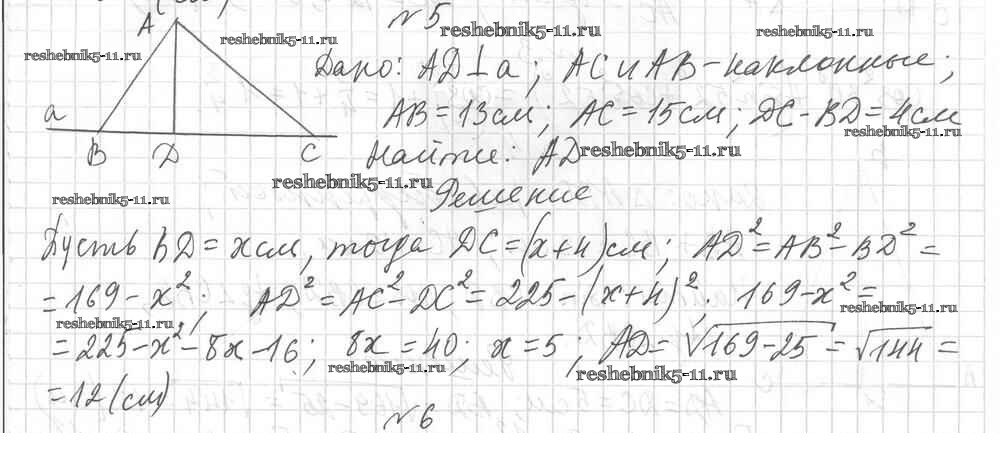 (см)
№5
A
reshebnik5-11.ru
reshebnik5-11.ru
reshebnik5-11.ru
reshebnik5-11.ru
Дано: AD⊥a; AC и AB – наклонные;
a
AB = 13 см; AC = 15 см; DC – BD = 4 см
reshebnik5-11.ru
B D C
Найти: AD
reshebnik5-11.ru
reshebnik5-11.ru
Решение
reshebnik5-11.ru
Пусть BD = x см, тогда DC = (x+4) см; AD² = AB² – BD² =
= 169 – x²; AD² = AC² – DC² = 225 – (x+4)²; 169 – x² =
reshebnik5-11.ru
reshebnik5-11.ru
= 225 – x² – 8x – 16; 8x = 40; x = 5; AD = √169 – 25 = √144 =
reshebnik5-11.ru
reshebnik5-11.ru
= 12 (см)
№6